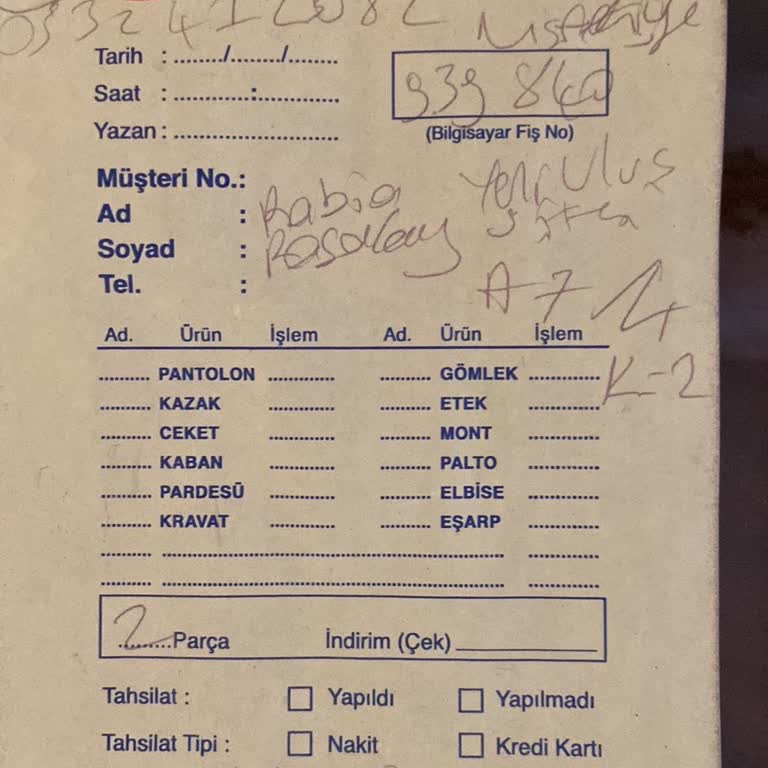 Tarih : ......../......../........
Saat : ............:.............
939 840
Yazan : ...........................
(Bilgisayar Fiş No)
Müşteri No.:
Ad : Rabia
Soyad :
Tel. :
A 7
K-2
Ad. Ürün İşlem Ad. Ürün İşlem
.......... PANTOLON ............. .......... GÖMLEK ..............
.......... KAZAK ............. .......... ETEK ..............
.......... CEKET ............. .......... MONT ..............
.......... KABAN ............. .......... PALTO ..............
.......... PARDESÜ ............. .......... ELBİSE ..............
.......... KRAVAT ............. .......... EŞARP ..............
2 Parça İndirim (Çek) ____________
Tahsilat : Yapıldı Yapılmadı
Tahsilat Tipi : Nakit Kredi Kartı